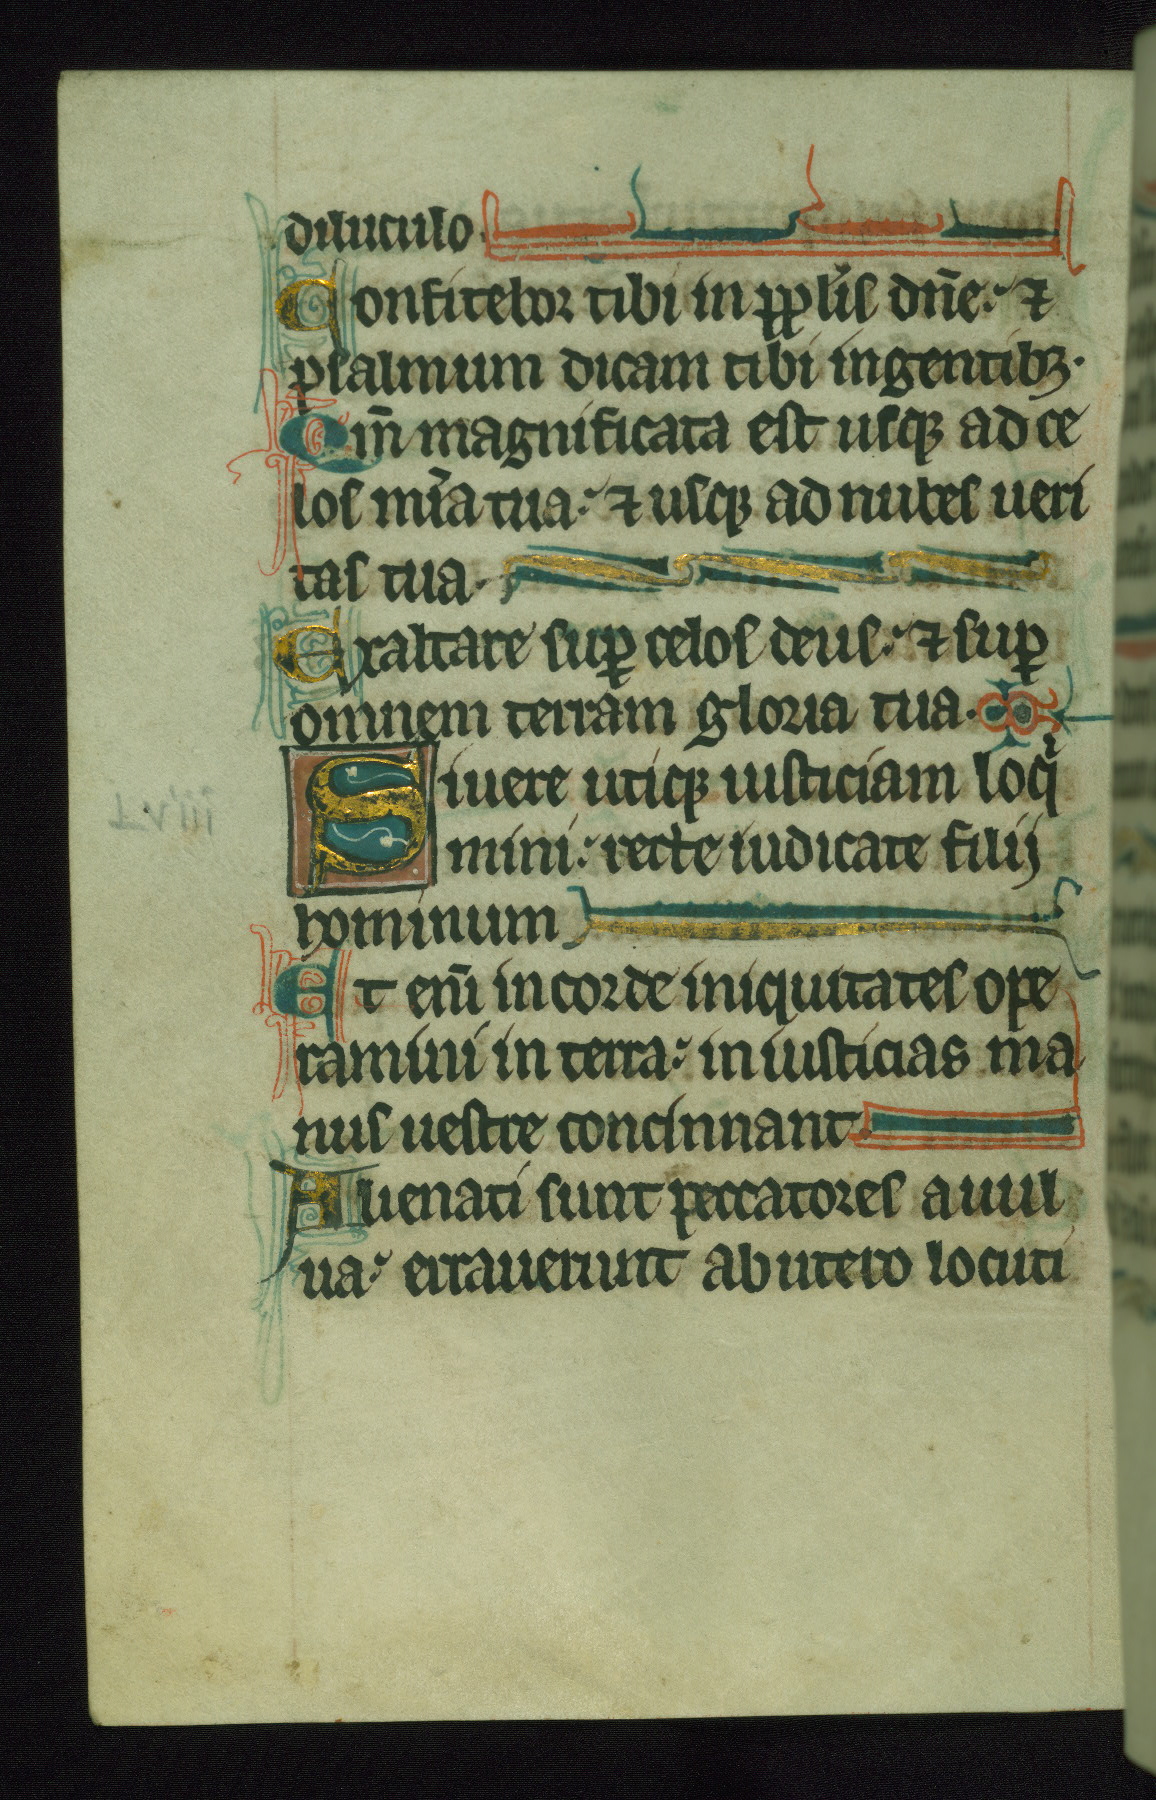 diluculo
Confitebor tibi in pplis dñe: ⁊
psalmum dicam tibi in gentibꝫ.
Qm̄ magnificata est usqꝫ ad ce
los mĩa tua: ⁊ usqꝫ ad nubes ueri
tas tua.
Exaltare suꝑ celos deus: ⁊ suꝑ
omnem terram gloria tua.
Si uere utiqꝫ iusticiam loqͥ
mini: recte iudicate filij
hominum
Et enī in corde iniquitates ope
ramini in terra: iniusticias ma
nus uestre concinnant.
Alienati sunt peccatores a uul
ua: errauerunt ab utero locuti